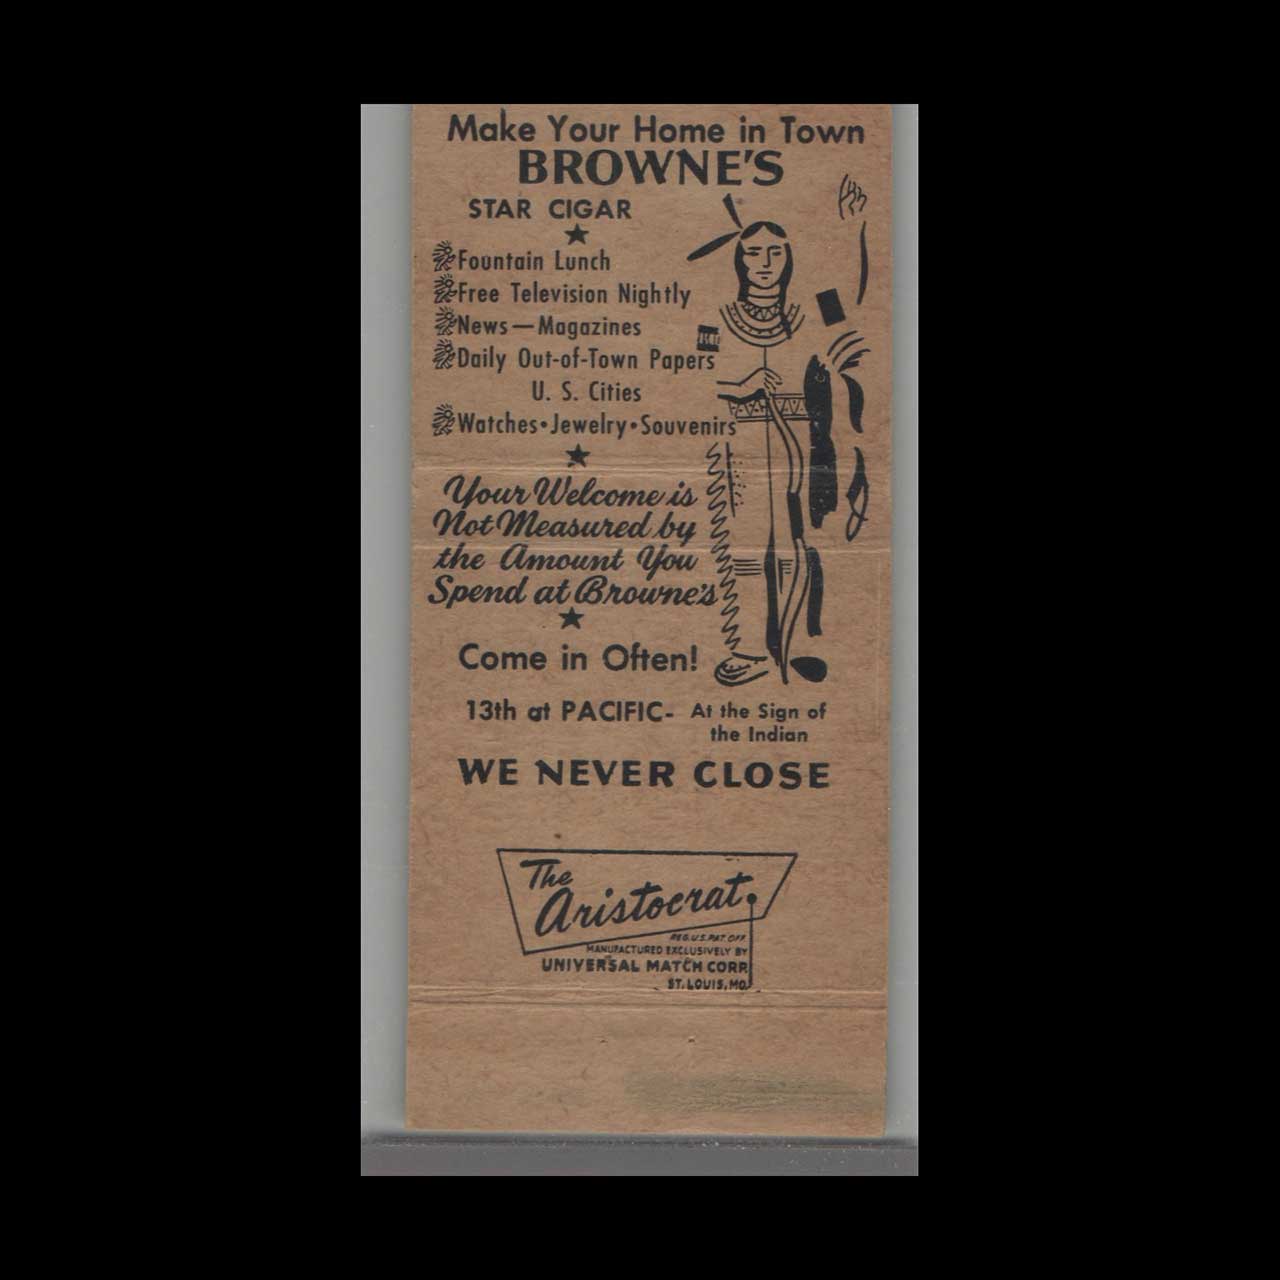 Make Your Home in Town
BROWNE'S
STAR CIGAR
Fountain Lunch
Free Television Nightly
News — Magazines
Daily Out-of-Town Papers
U. S. Cities
Watches • Jewelry • Souvenirs
Your Welcome is
Not Measured by
the Amount You
Spend at Browne's
Come in Often!
13th at PACIFIC- At the Sign of
the Indian
WE NEVER CLOSE
The
Aristocrat
REG. U.S. PAT. OFF.
MANUFACTURED EXCLUSIVELY BY
UNIVERSAL MATCH CORP.
ST. LOUIS, MO.